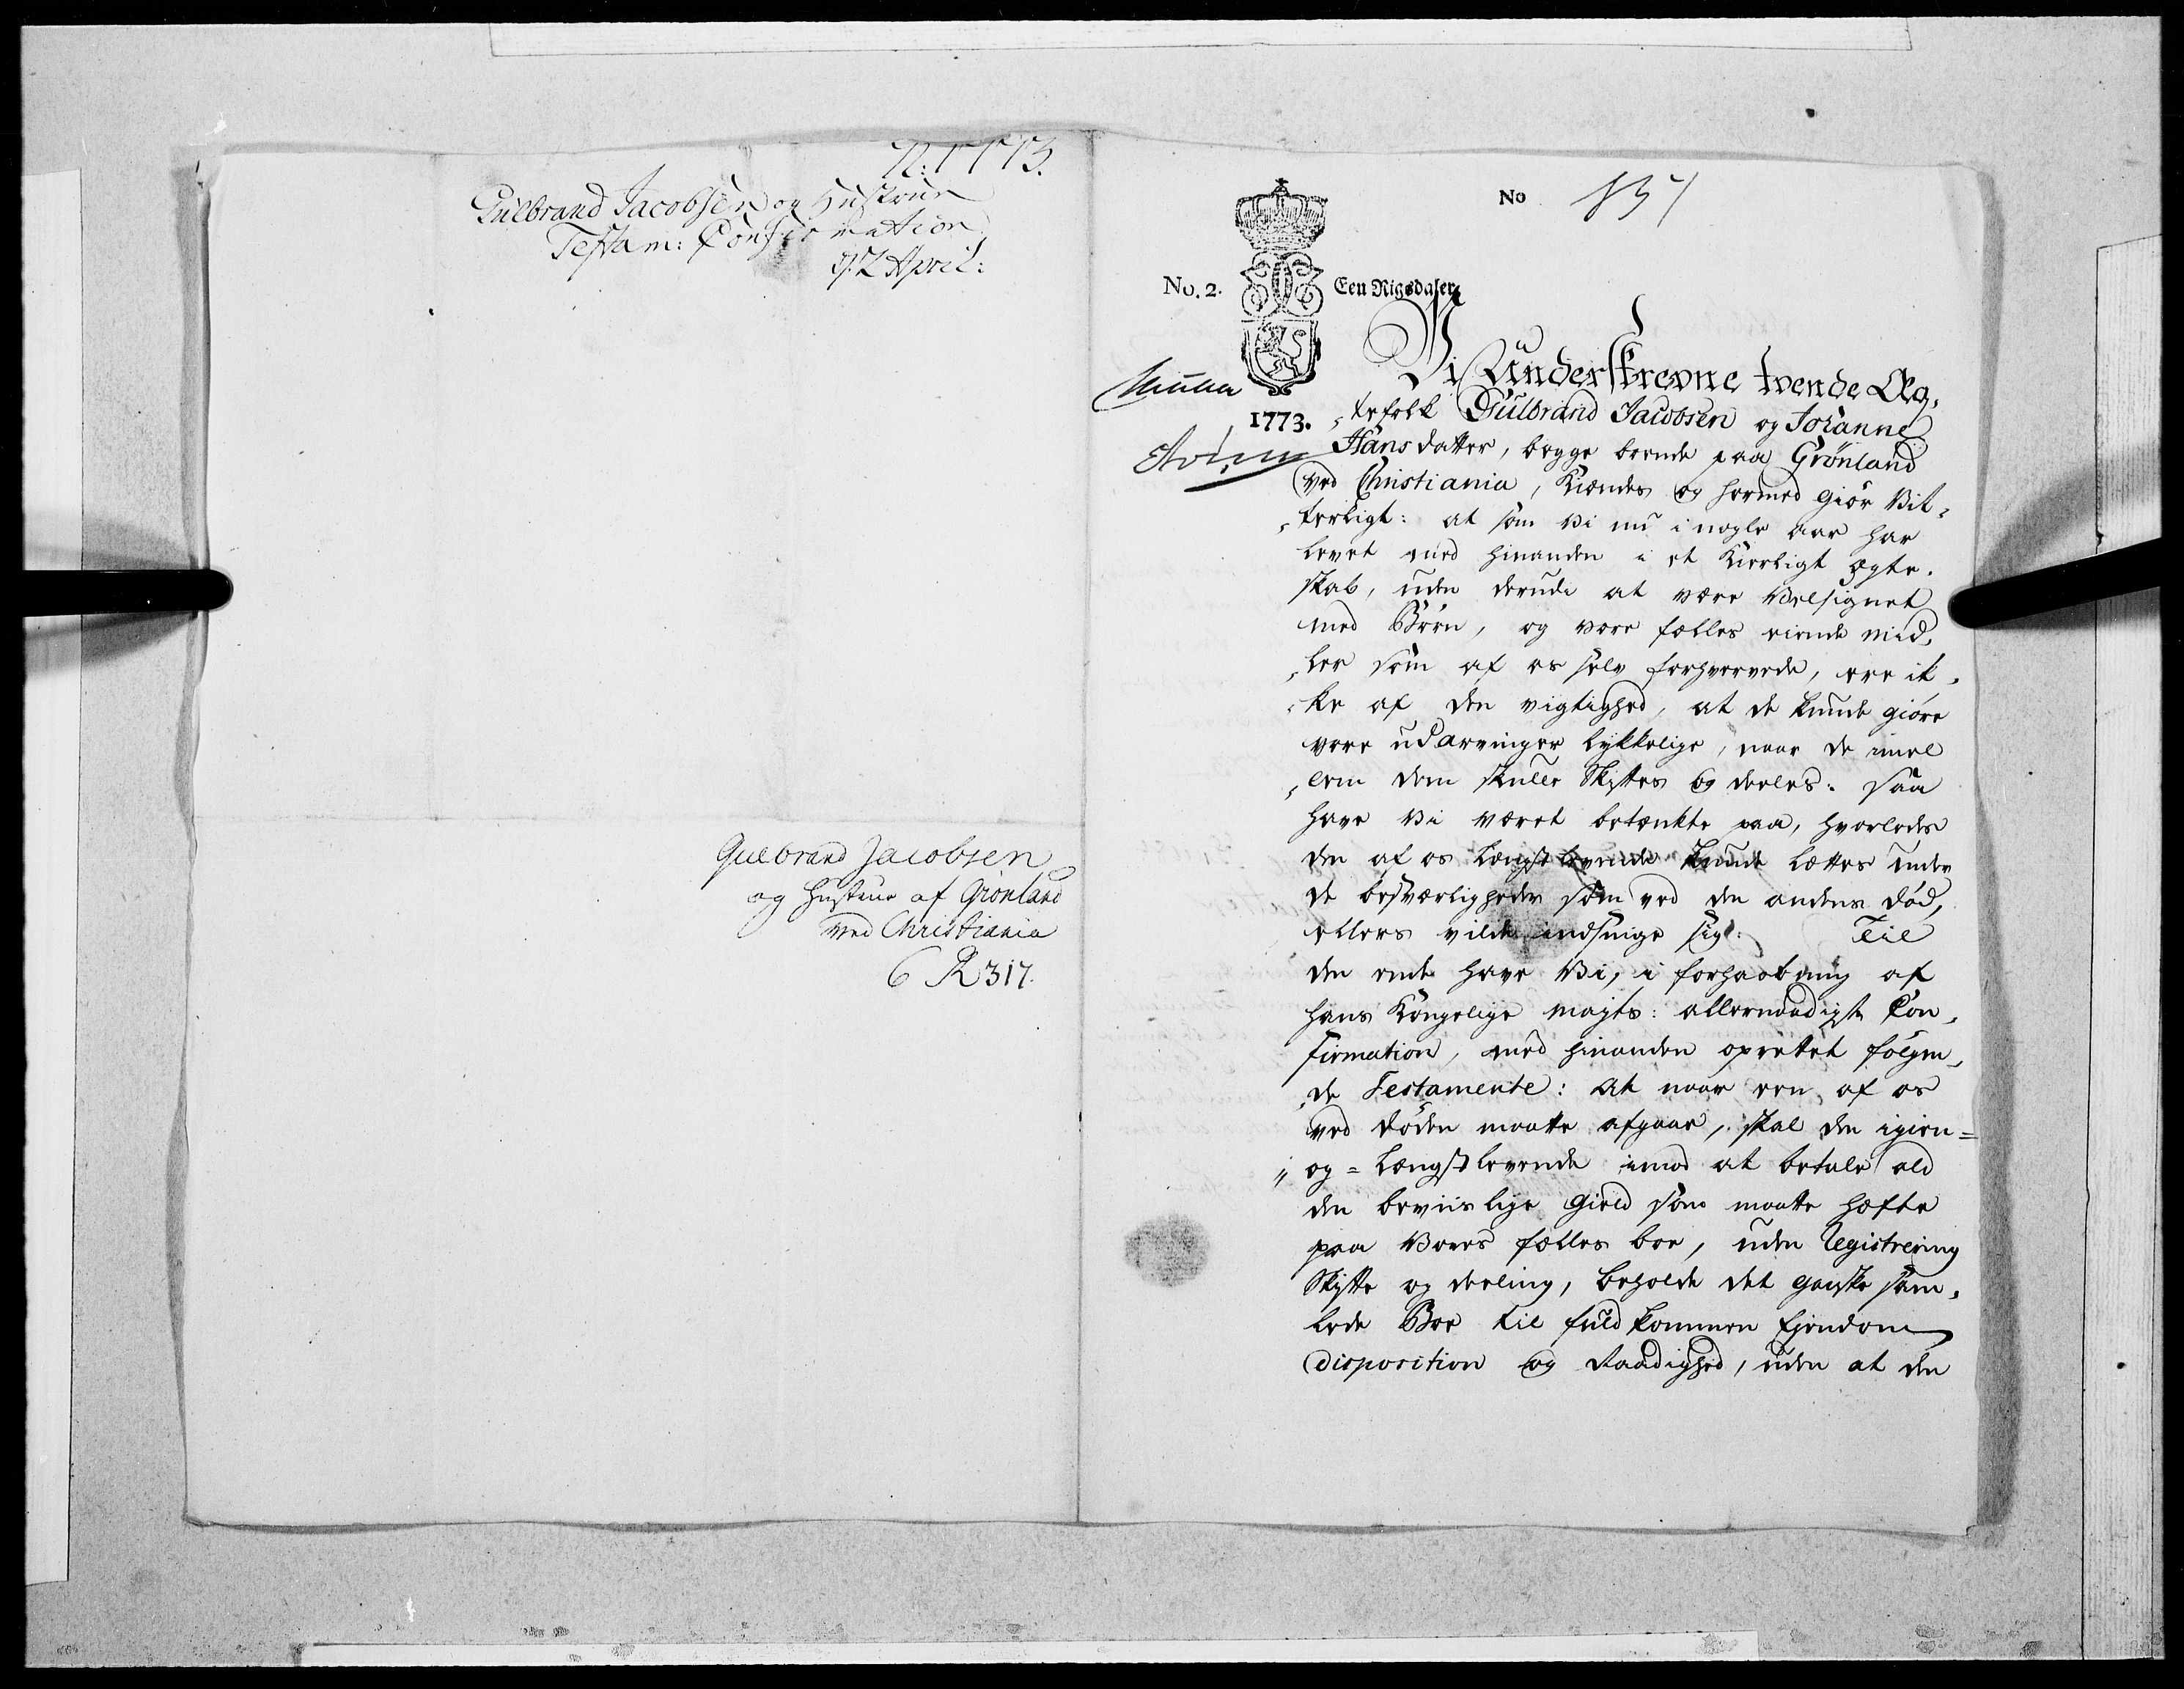 N: 1773.
Gulbrand Jacobsen og Hustrues
Testam: Confirmation
d: 2 April:
Gulbrand Jacobsen
og Hustrue af Grønland
ved Christiania
6 R 317.
No
No. 2.
Een Rigsdaler
1773.
Vi Underskrevne tvende Æg,
,tefolk Gulbrand Jacobsen og Johanne
Hans datter, begge boende paa Grønland
ved Christiania, Kiendes og hermed giør Vit,
,terligt: at som Vi nu i nogle aar har
levet med hinanden i et Kierligt ægte,
skab, uden derudi at være Velsignet
med Børn, og vore fælles eiende mid,
,ler som af os selv forhvervede, ere ik,
,ke af den vigtighed, at de kunde giøre
vore udarvinger lykkelige, naar de imel
,lem dem skulle Skiftes og deeles. saa
have Vi været betænkte paa, hvorledes
den af os længstlevende kunde lættes under
de besværligheder som ved den andens død,
ellers vilde indsnige sig. Til
den ende have Vi, i forhaabning af
hans Kongelige Majts: allernaadigste Con,
firmation, med hinanden oprettet følgen,
,de Testamente: At naar een af os
ved døden maatte afgaae, skal den igien=
og = længstlevende imod at betale all
den beviislige Gield som maatte hæfte
paa Vores fælles boe, uden Registrering
Skifte og deeling, beholde det ganske sam,
lede Boe til fuldkommen Ejendom
disposition og Raadighed, uden at den